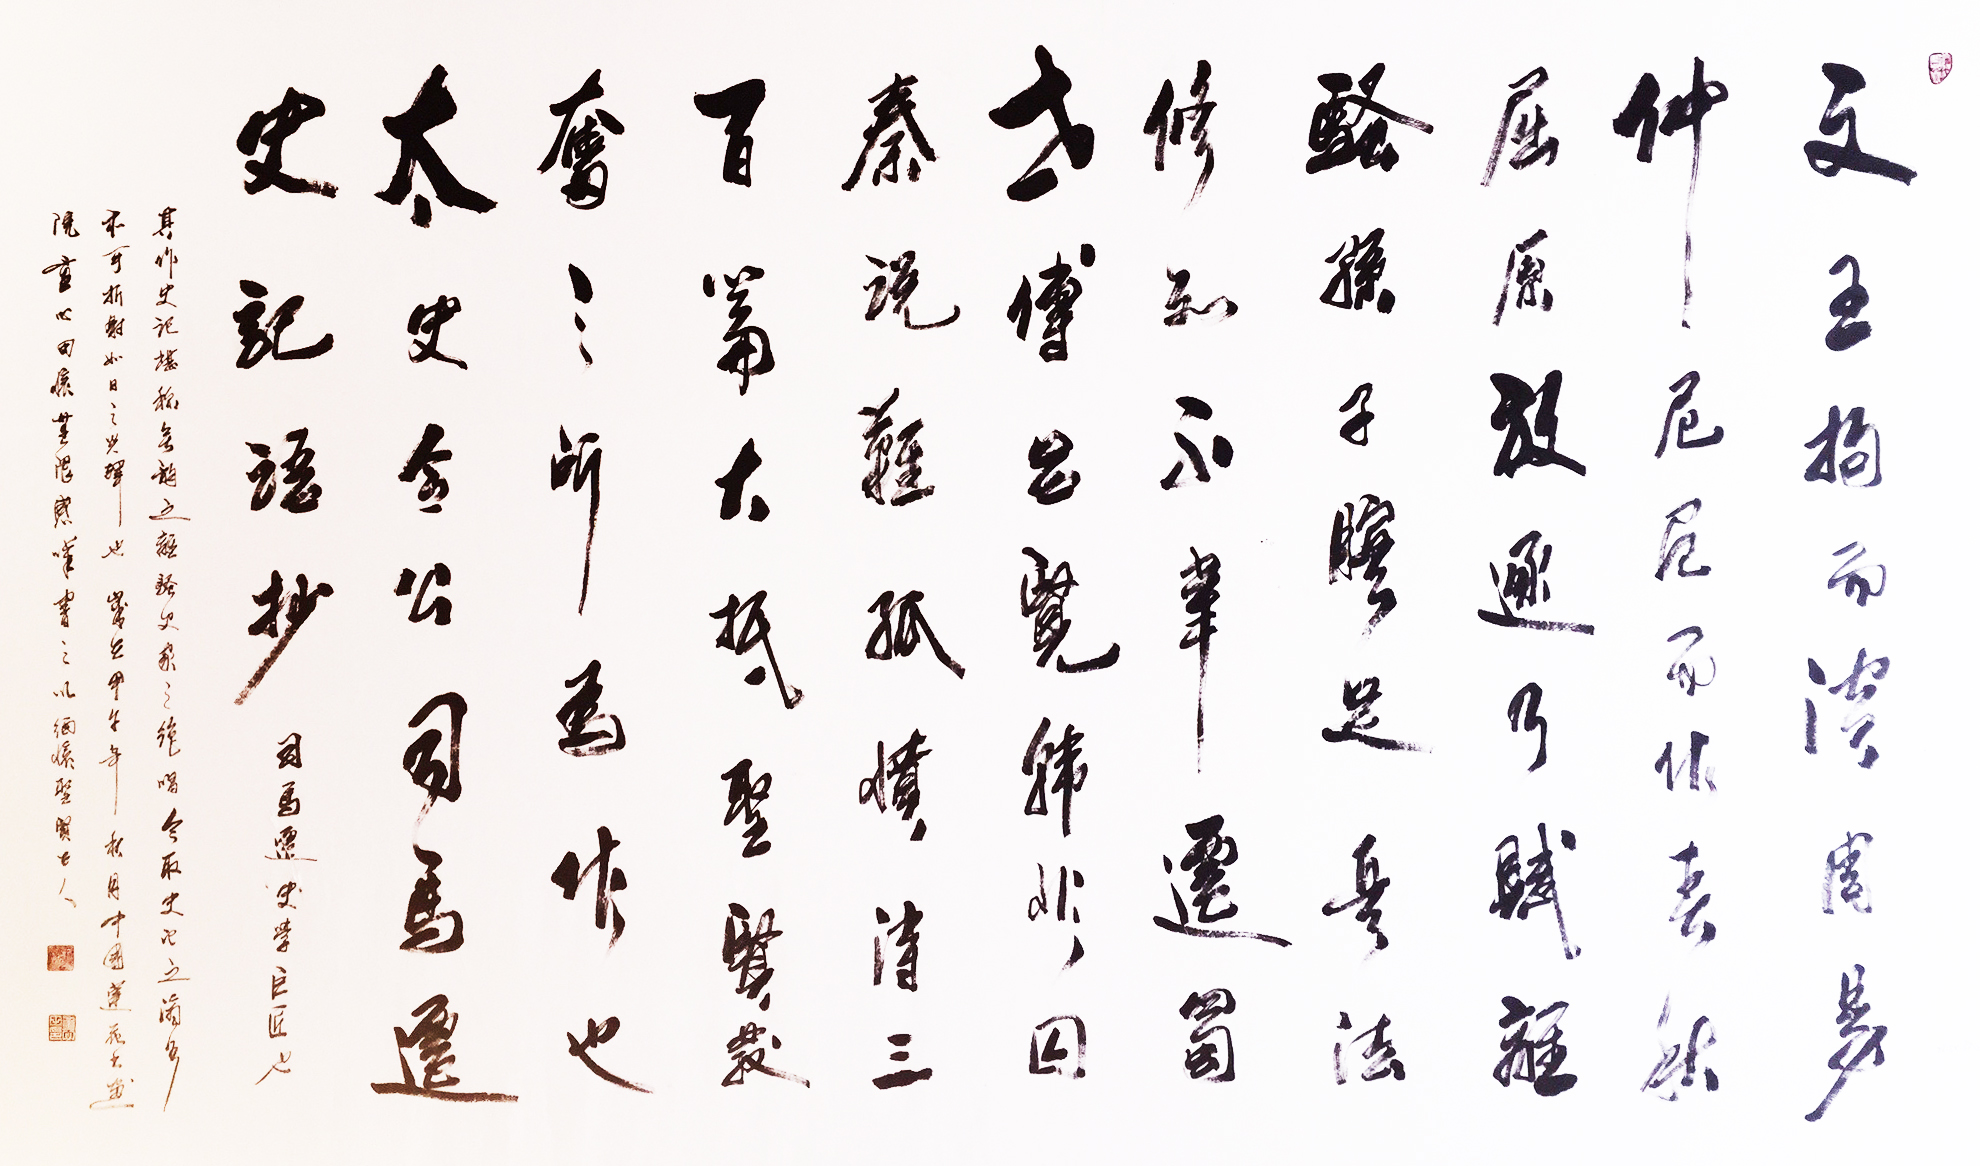 文王拘而演周易
仲尼厄而作春秋
屈原放逐乃賦離
騷孫子臏足兵法
修列不韋遷蜀
世傳呂覽韓非囚
秦說難孤憤詩三
百篇大抵聖賢發
奮之所為作也
太史令公司馬遷
史記語抄 司馬遷史學巨匠也
其作史記堪稱無韻之離騷史家之絕唱今取史記之滴
不可折射如日之光輝也 歲在甲午年秋月中國蓮花書畫
院 心田懷無限感嘆書之以緬懷聖賢古人